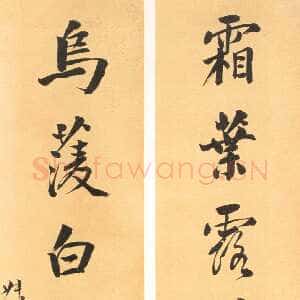 霜葉露
烏蔆白
Shufawang.CN